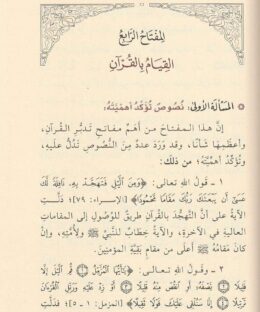 المفتاح الرابع
القيام بالقرآن
المسألة الأولى: نصوص تؤكد أهميته:
إن هذا المفتاح من أهم مفاتح تدبر القرآن،
وأعظمها شأنا، وقد ورد عدد من النصوص تدل عليه،
وتؤكد أهميته؛ من ذلك:
١ - قول الله تعالى: ﴿وَمِنَ ٱلَّيْلِ فَتَهَجَّدْ بِهِۦ نَافِلَةً لَّكَ
عَسَىٰٓ أَن يَبْعَثَكَ رَبُّكَ مَقَامًا مَّحْمُودًا﴾ [الإسراء: ٧٩]؛ دلت
الآية على أن التهجد بالقرآن طريق للوصول إلى المقامات
العالية في الآخرة، والآية خطاب للنبي ﷺ ولأمته، وإن
كان مقامه ﷺ أعلى من مقام بقية المؤمنين.
٢ - وقول الله تعالى: ﴿يَٰٓأَيُّهَا ٱلْمُزَّمِّلُ ۝ قُمِ ٱلَّيْلَ إِلَّا
قَلِيلًا ۝ نِّصْفَهُۥٓ أَوِ ٱنقُصْ مِنْهُ قَلِيلًا ۝ أَوْ زِدْ عَلَيْهِ وَرَتِّلِ ٱلْقُرْءَانَ
تَرْتِيلًا ۝ إِنَّا سَنُلْقِى عَلَيْكَ قَوْلًا ثَقِيلًا﴾ [المزمل: ١ - ٥]؛ دلت